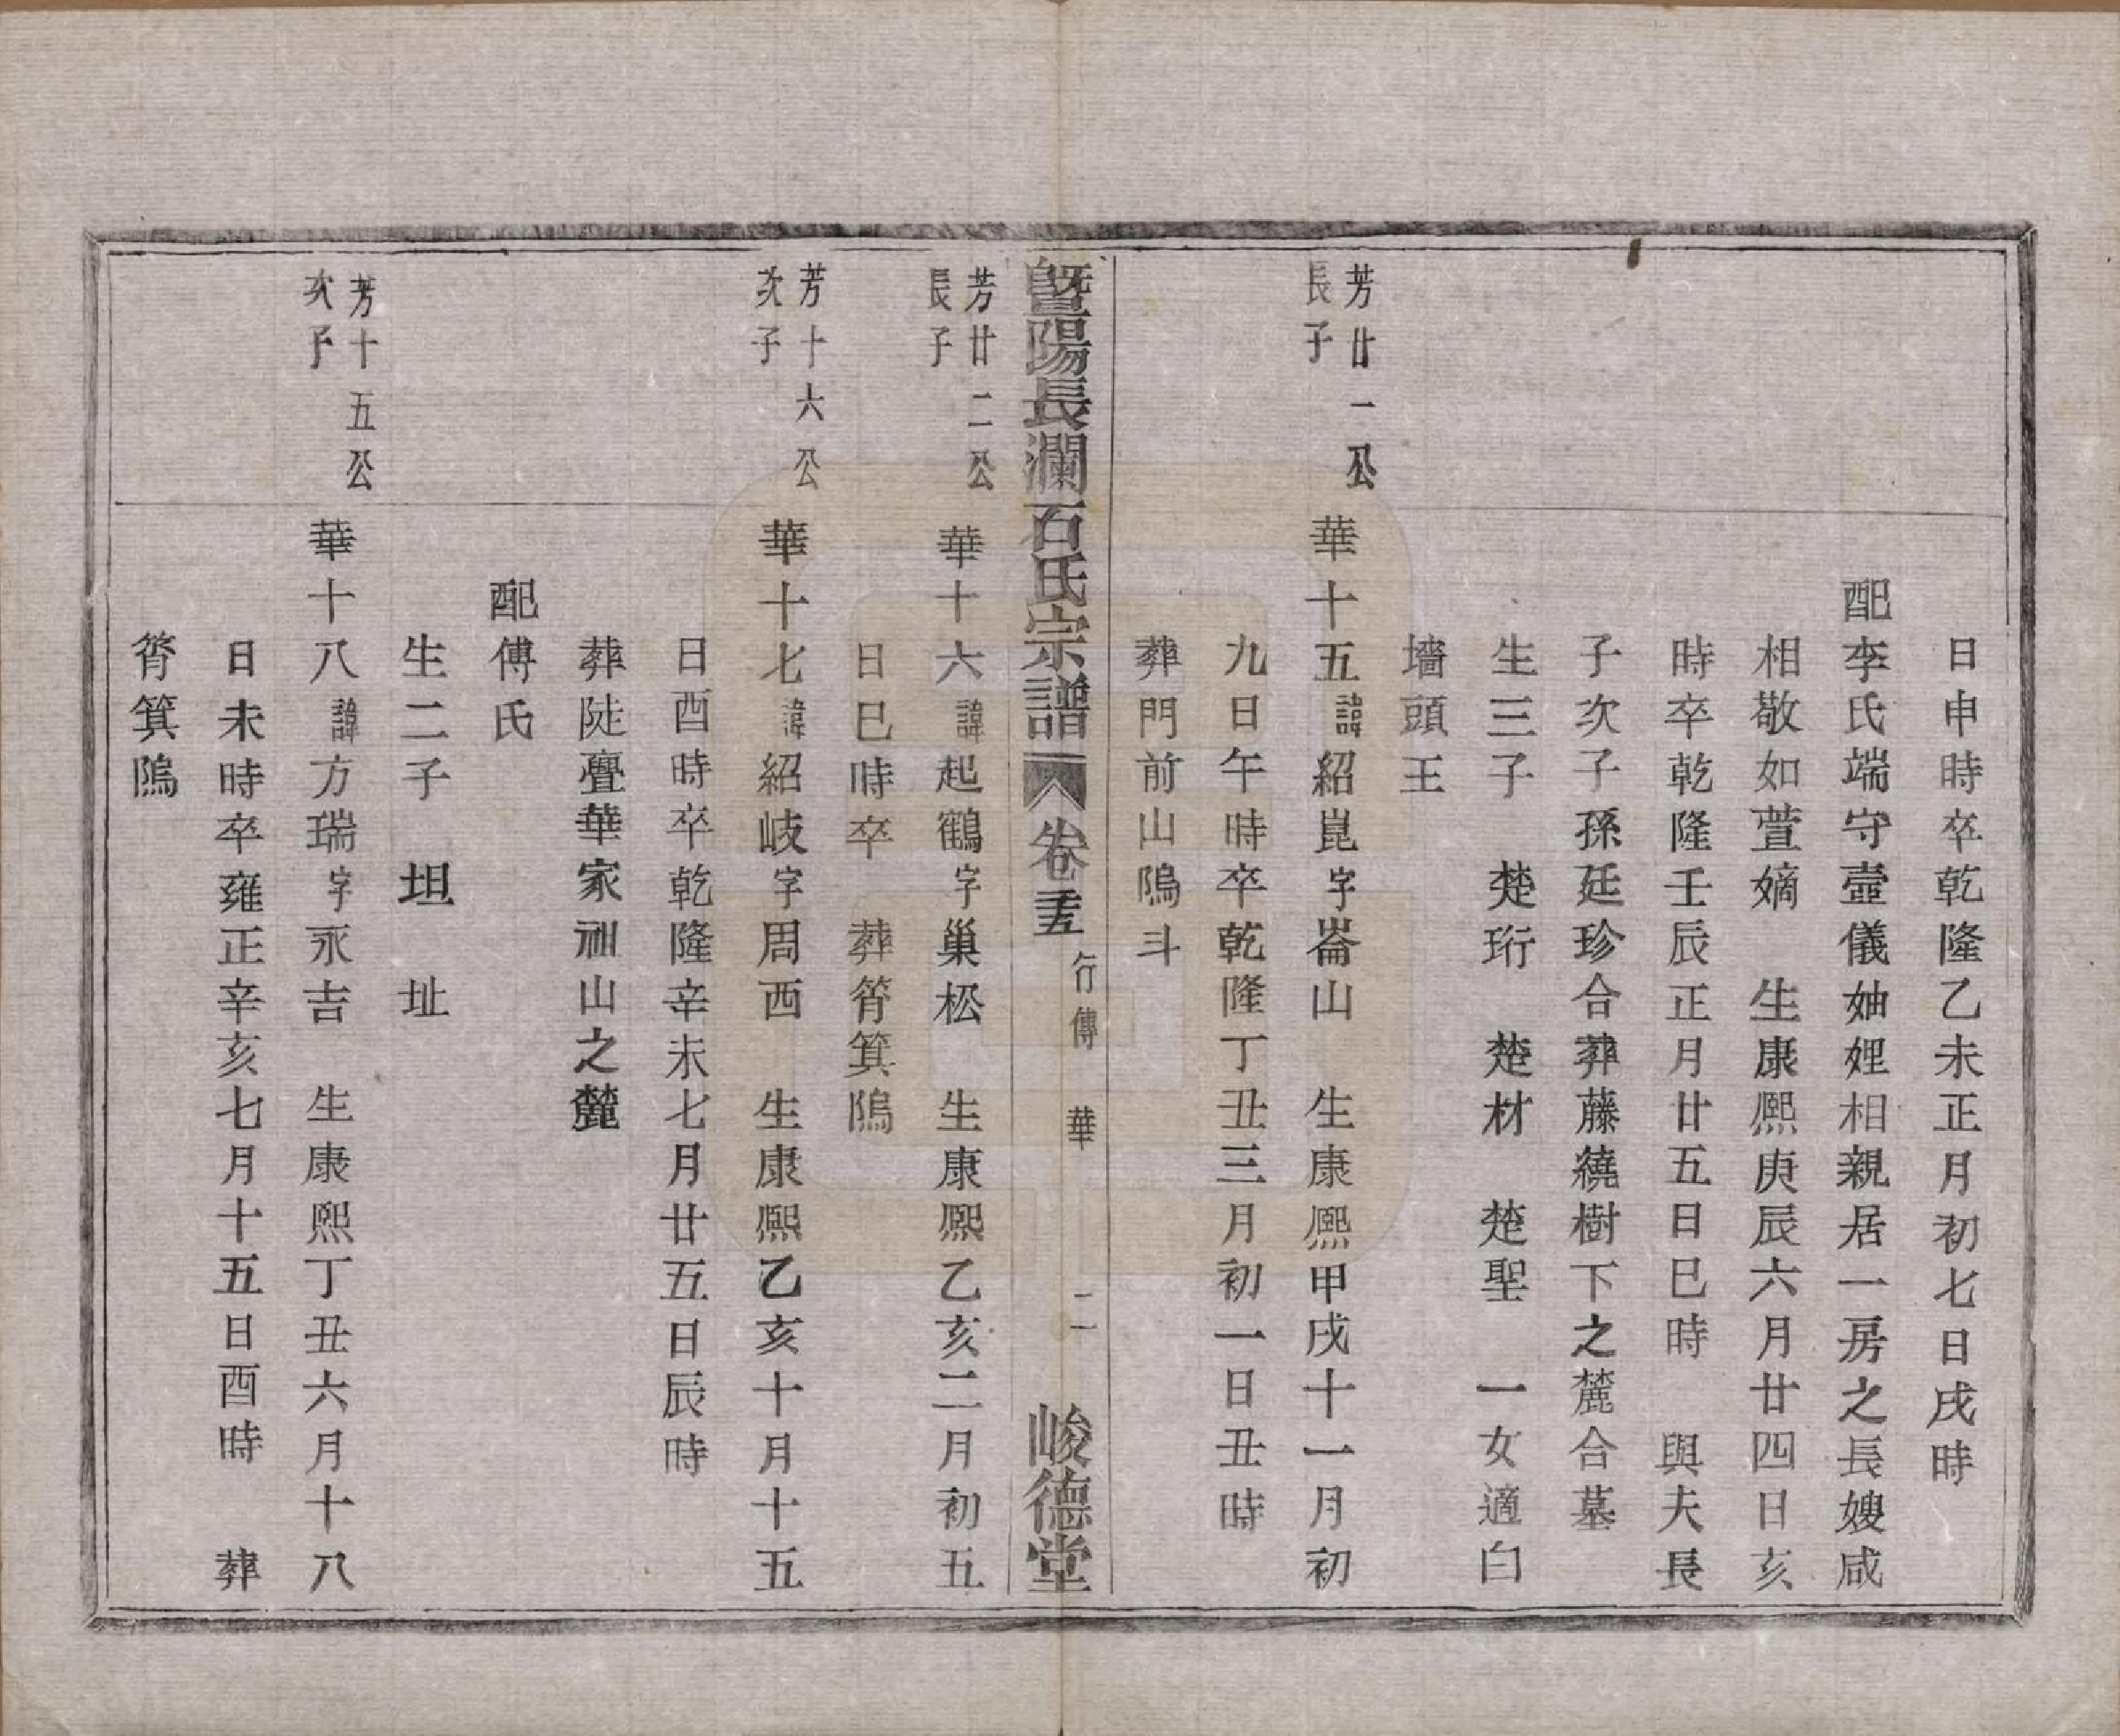 日申時卒乾隆乙未正月初七日戌時
配李氏端守壼儀妯娌相親居一房之長嫂咸
相敬如萱嫡　生康熙庚辰六月廿四日亥
時卒乾隆壬辰正月廿五日巳時　與夫長
子次子孫廷珍合葬藤繞樹下之麓合墓
生三子　楚珩　楚材　楚聖　一女適白
墻頭王
芳廿一公
長子
華十五諱紹崑字崙山　生康熙甲戌十一月初
九日午時卒乾隆丁丑三月初一日丑時
葬門前山隖斗
暨陽長瀾石氏宗譜　卷三十五　行傳　華　二　峻德堂
芳廿二公
長子
華十六諱起鶴字巢松　生康熙乙亥二月初五
日巳時卒　葬筲箕隖
芳十六公
次子
華十七諱紹岐字周西　生康熙乙亥十月十五
日酉時卒乾隆辛未七月廿五日辰時
葬陡亹華家祉山之麓
配傅氏
生二子　坦　址
芳十五公
次子
華十八諱方瑞字永吉　生康熙丁丑六月十八
日未時卒雍正辛亥七月十五日酉時　葬
筲箕隖